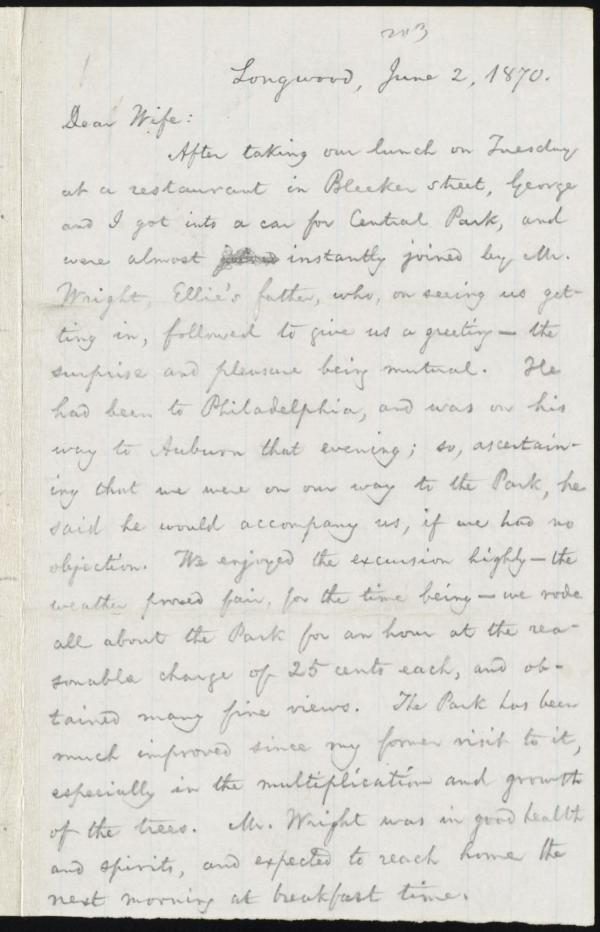 203
Longwood, June 2, 1870.
Dear Wife:
After taking our lunch on Tuesday
at a restaurant in Bleeker street, George
and I got into a car for Central Park, and
were almost instantly joined by Mr.
Wright, Ellie's father, who, on seeing us get-
ting in, followed to give us a greeting — the
surprise and pleasure being mutual. He
had been to Philadelphia, and was on his
way to Auburn that evening; so, ascertain-
ing that we were on our way to the Park, he
said he would accompany us, if we had no
objection. We enjoyed the excursion highly — the
weather proved fair, for the time being — we rode
all about the Park for an hour at the rea-
sonable charge of 25 cents each, and ob-
tained many fine views. The Park has been
much improved since my former visit to it,
especially in the multiplication and growth
of the trees. Mr. Wright was in good health
and spirits, and expected to reach home the
next morning at breakfast time.